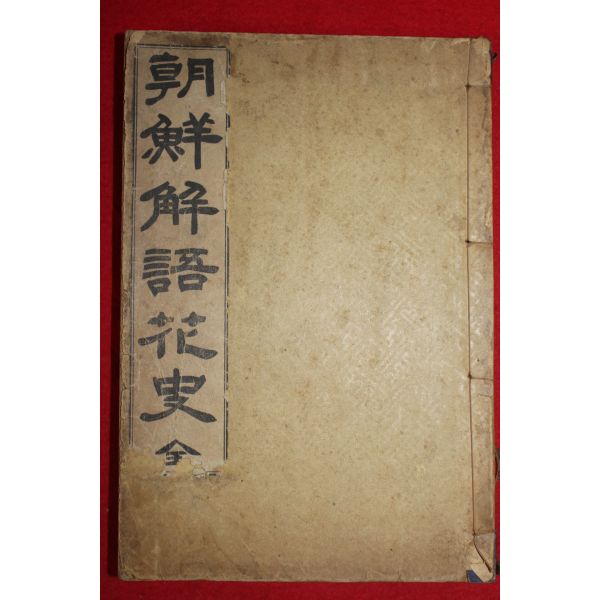 朝鮮解語花史全